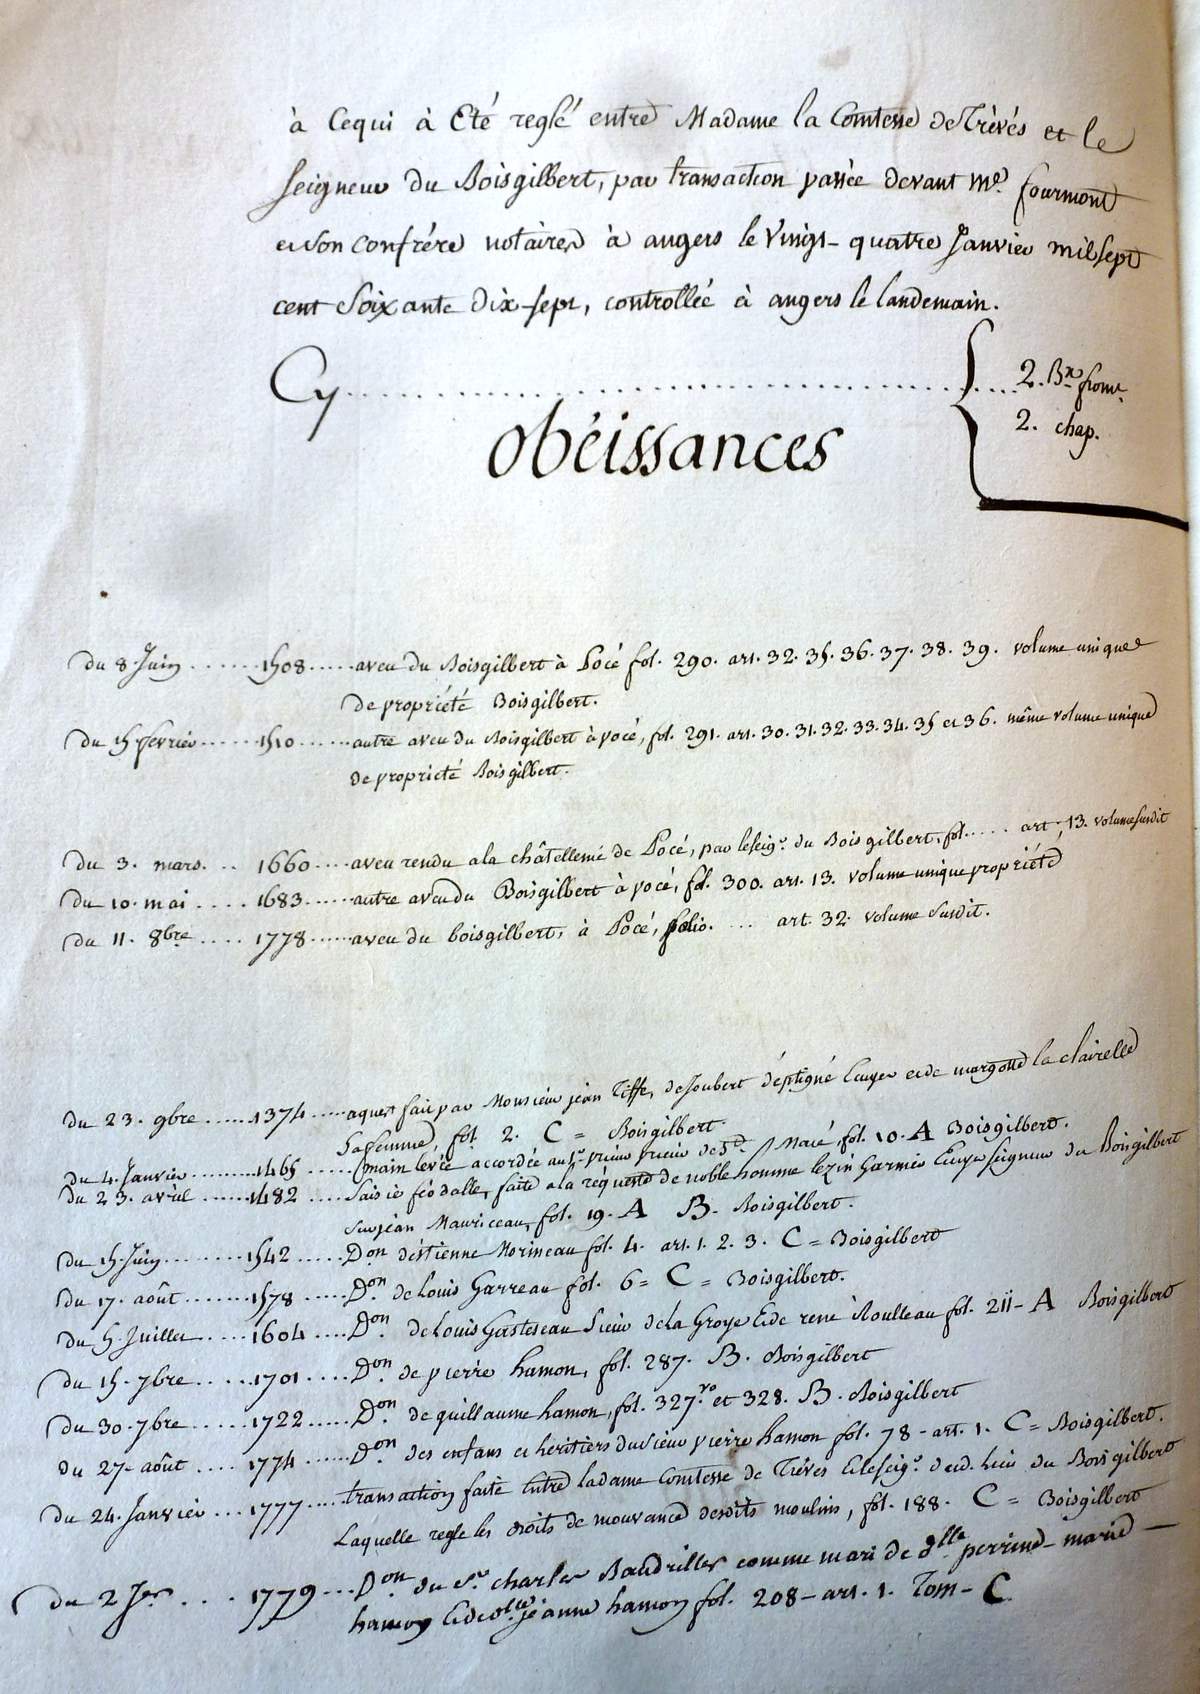 à Cequi à Eté reglé entre Madame la Comtesse de Trèvés et le
seigneur du Boisgilbert, par transaction passée devant Me. fourmont
et son confrére notaires à angers le Vingt-quatre Janvier mil sept
cent Soixante Dix-sept, controllée à angers le landemain.
Cy .... 2. Bx from.
2. chap.
Obéissances
du 8 Juin ...... 1508 ..... aveu du Boisgilbert à Pocé fol. 290. art. 32. 35. 36. 37. 38. 39. volume unique
de propriété Boisgilbert.
du 15 fevrier ..... 1510 ...... autre aveu du Boisgilbert à pocé, fol. 291. art. 30. 31. 32. 33. 34. 35 et 36. même volume unique
de propriété Boisgilbert.
du 3. mars. .. 1660 .... aveu rendu a la châtellenie de Pocé, par le seigr. du Boisgilbert, fol. .... art. 13. volume susdit
du 10. mai .... 1683 ...... autre aveu du Boisgilbert à pocé, fol. 300. art. 13. volume unique propriété
du 11. 8bre .... 1778 ...... aveu du boisgilbert, à Pocé, folio. ... art. 32. volume Susdit.
du 23. 9bre ..... 1374 ..... aquest fait par Monsieur jean Tiffe, de Joubert d'éptigné Ecuyer et de margotte la clairelle
Sa femme, fol. 2. C = Boisgilbert.
du 4. Janvier ........ 1465 ..... main levée accordée au sr. prieur prieur de St. Macé, fol. 10. A Boisgilbert.
du 23. avril ...... 1482 .... Saisie féodalle, faite a la réqueste de noble homme lezin Garnier Ecuyer seigneur du Boisgilbert
Sur jean Mauriceau, fol. 19. A B. Boisgilbert.
du 15. Juin ....... 1542 ..... Don. d'éstienne Morineau fol. 4. art. 1. 2. 3. C = Boisgilbert
du 17. août ....... 1578 ..... Don. de Louis Garreau fol. 6 = C = Boisgilbert.
du 5. Juillet .... 1604 .... Don. de Louis Gasteseau Sieur de la Groye & de rené Roulleau fol. 211 - A Boisgilbert
du 15. 7bre ..... 1701 .... Don. de pierre hamon, fol. 287. B. Boisgilbert
du 30. 7bre .... 1722 ..... Don. de guillaume hamon, fol. 327. vo et 328. B. Boisgilbert
du 27 août .... 1774 ...... Don. des enfans et héritiers du sieur pierre hamon fol. 78 - art. 1. C = Boisgilbert.
du 24. Janvier ... 1777 .... transaction faite Entre la dame Comtesse de Trèves & le seigr. dud. lieu du Boisgilbert
Laquelle regle les droits de mouvance desdits moulins, fol. 188. C = Boisgilbert
du 2 Jer ... 1779 ... Don. du Sr. charles Baudriller comme mari de dlle. perrine - marie -
hamon & de dlle. jeanne hamon fol. 208 - art. 1. Tom - C